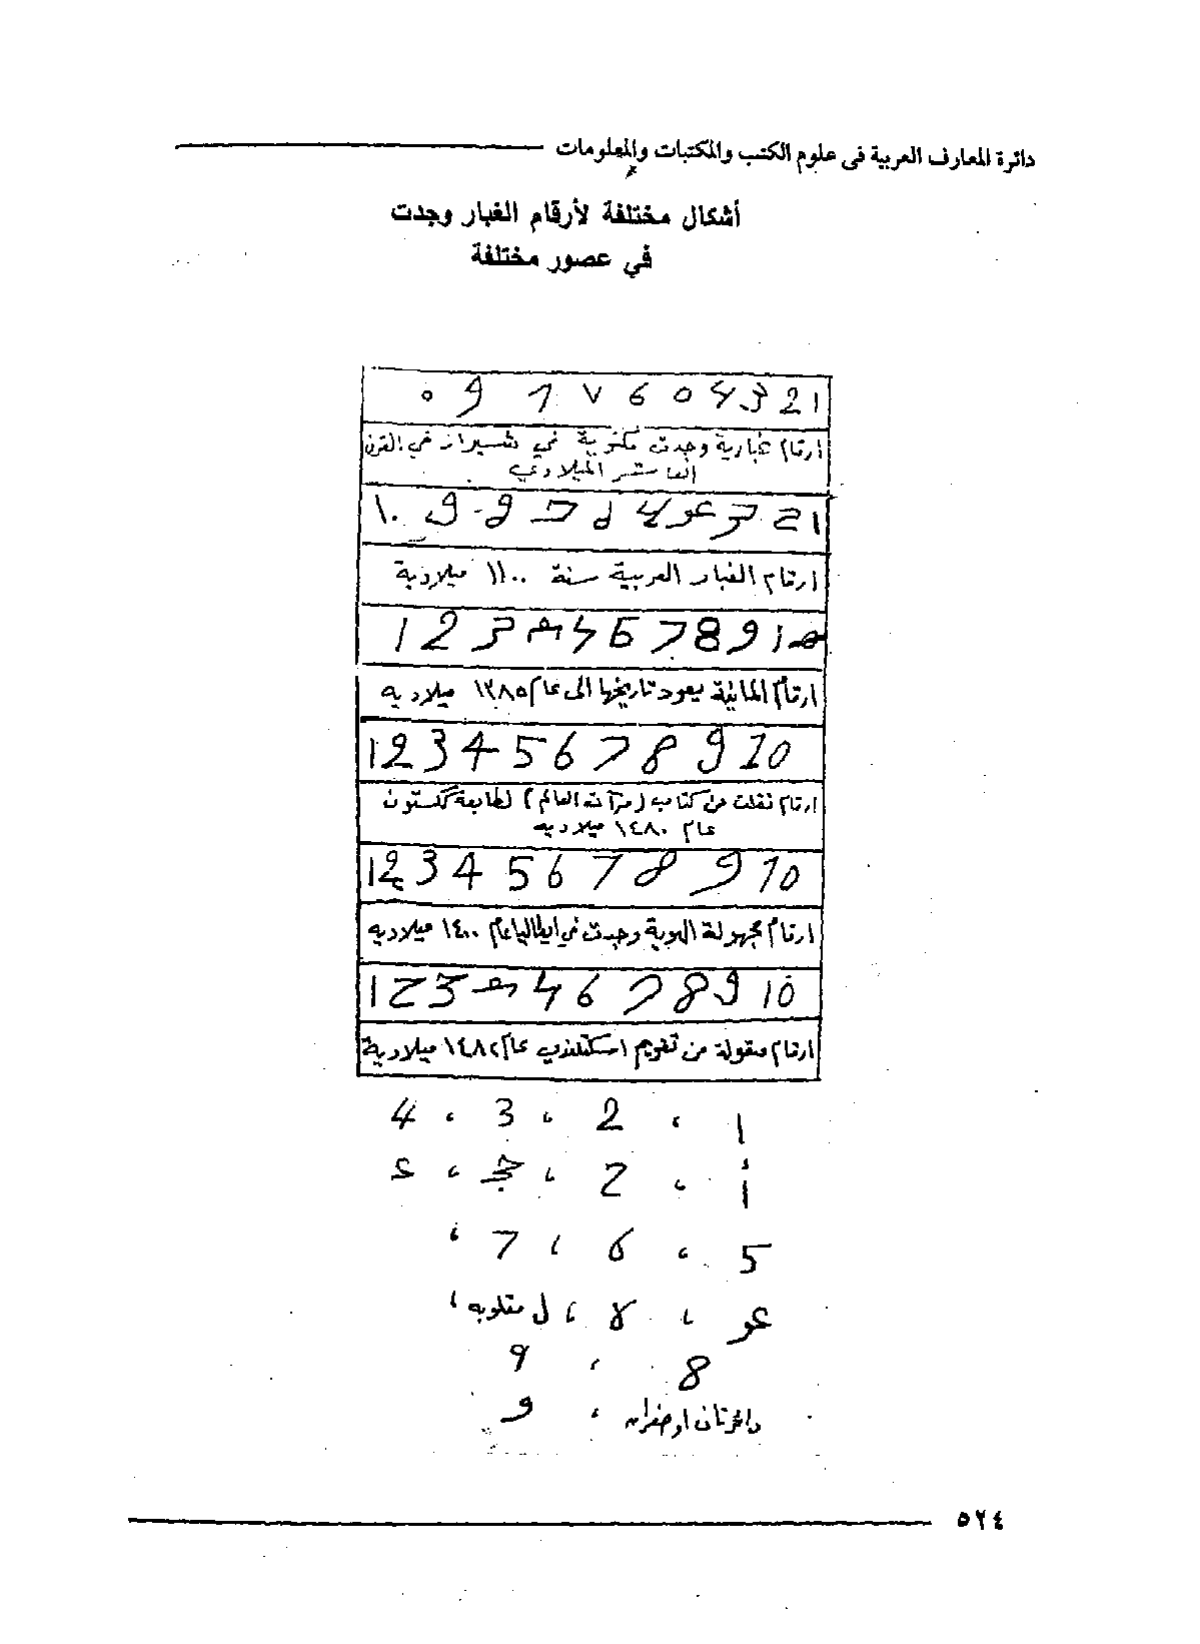 دائرة المعارف العربية فى علوم الكتب والمكتبات والمعلومات
أشكال مختلفة لأرقام الغبار وجدت
في عصور مختلفة
ارقام غبارية وجدت مكتوبة في شيراز في القرن
العاشر الميلادي
ارقام الغبار العربية سنة ١١٠٠ ميلادية
1 2 3 4 6 7 8 9
ارقام المانية يعود تاريخها الى عام ١٣٨٥ ميلاديه
1 2 3 4 5 6 7 8 9 10
ارقام نقلت من كتاب (مرآت العالم) لطابعة كگستون
عام ١٤٨٠ ميلاديه
1 2 3 4 5 6 7 8 9 10
ارقام مجهولة الهوية وجدت في ايطاليا عام ١٤٠٠ ميلاديه
1 2 3 4 6 7 8 9 10
ارقام منقولة من تقويم اسكتلندي عام ١٤٨٢ ميلادية
1 ، 2 ، 3 ، 4
أ ، 2 ، حـ ، ع
5 ، 6 ، 7 ،
عو ، ، ل مقلوبه ،
8 ، 9
دائرتان او صفران ، و
٥٢٤